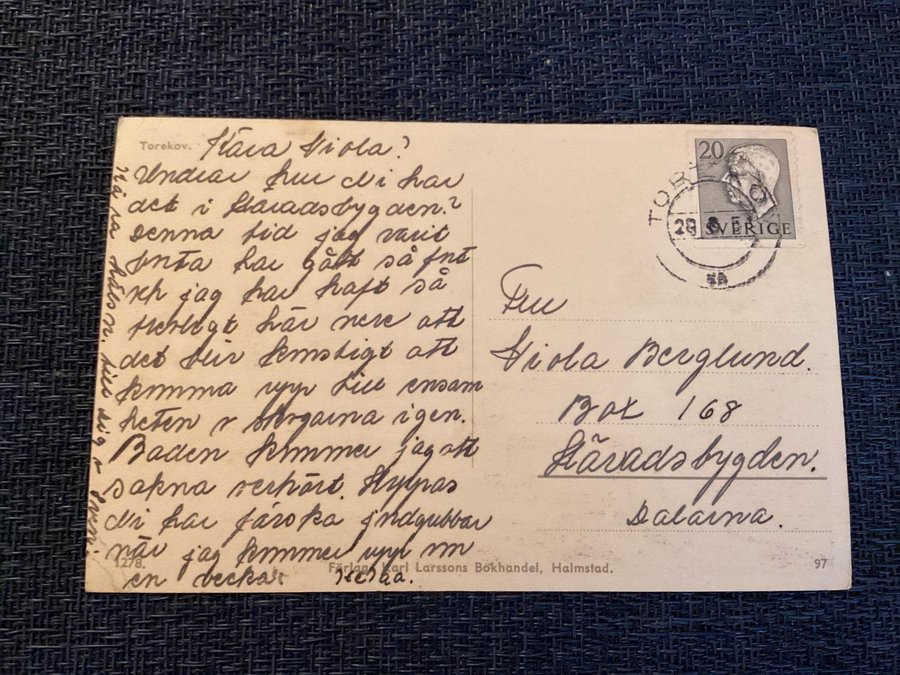 Torekov.
Kära Viola?
Undrar hur Ni har
det i Häradsbygden?
Denna tid jag varit
borta har gått så fort
och jag har haft så
trevligt här nere att
det blir konstigt att
komma upp till ensam
heten o skogarna igen.
Baden kommer jag att
sakna oerhört. Hoppas
Ni har färska jordgubbar
när jag kommer upp om
en vecka. Helga.
Nå så hälsn. till dig o
1278.
Förlag: Karl Larssons Bokhandel, Halmstad.
97
20
SVERIGE
TOREKOV
Fru
Viola Berglund.
Box 168
Häradsbygden.
Dalarna.